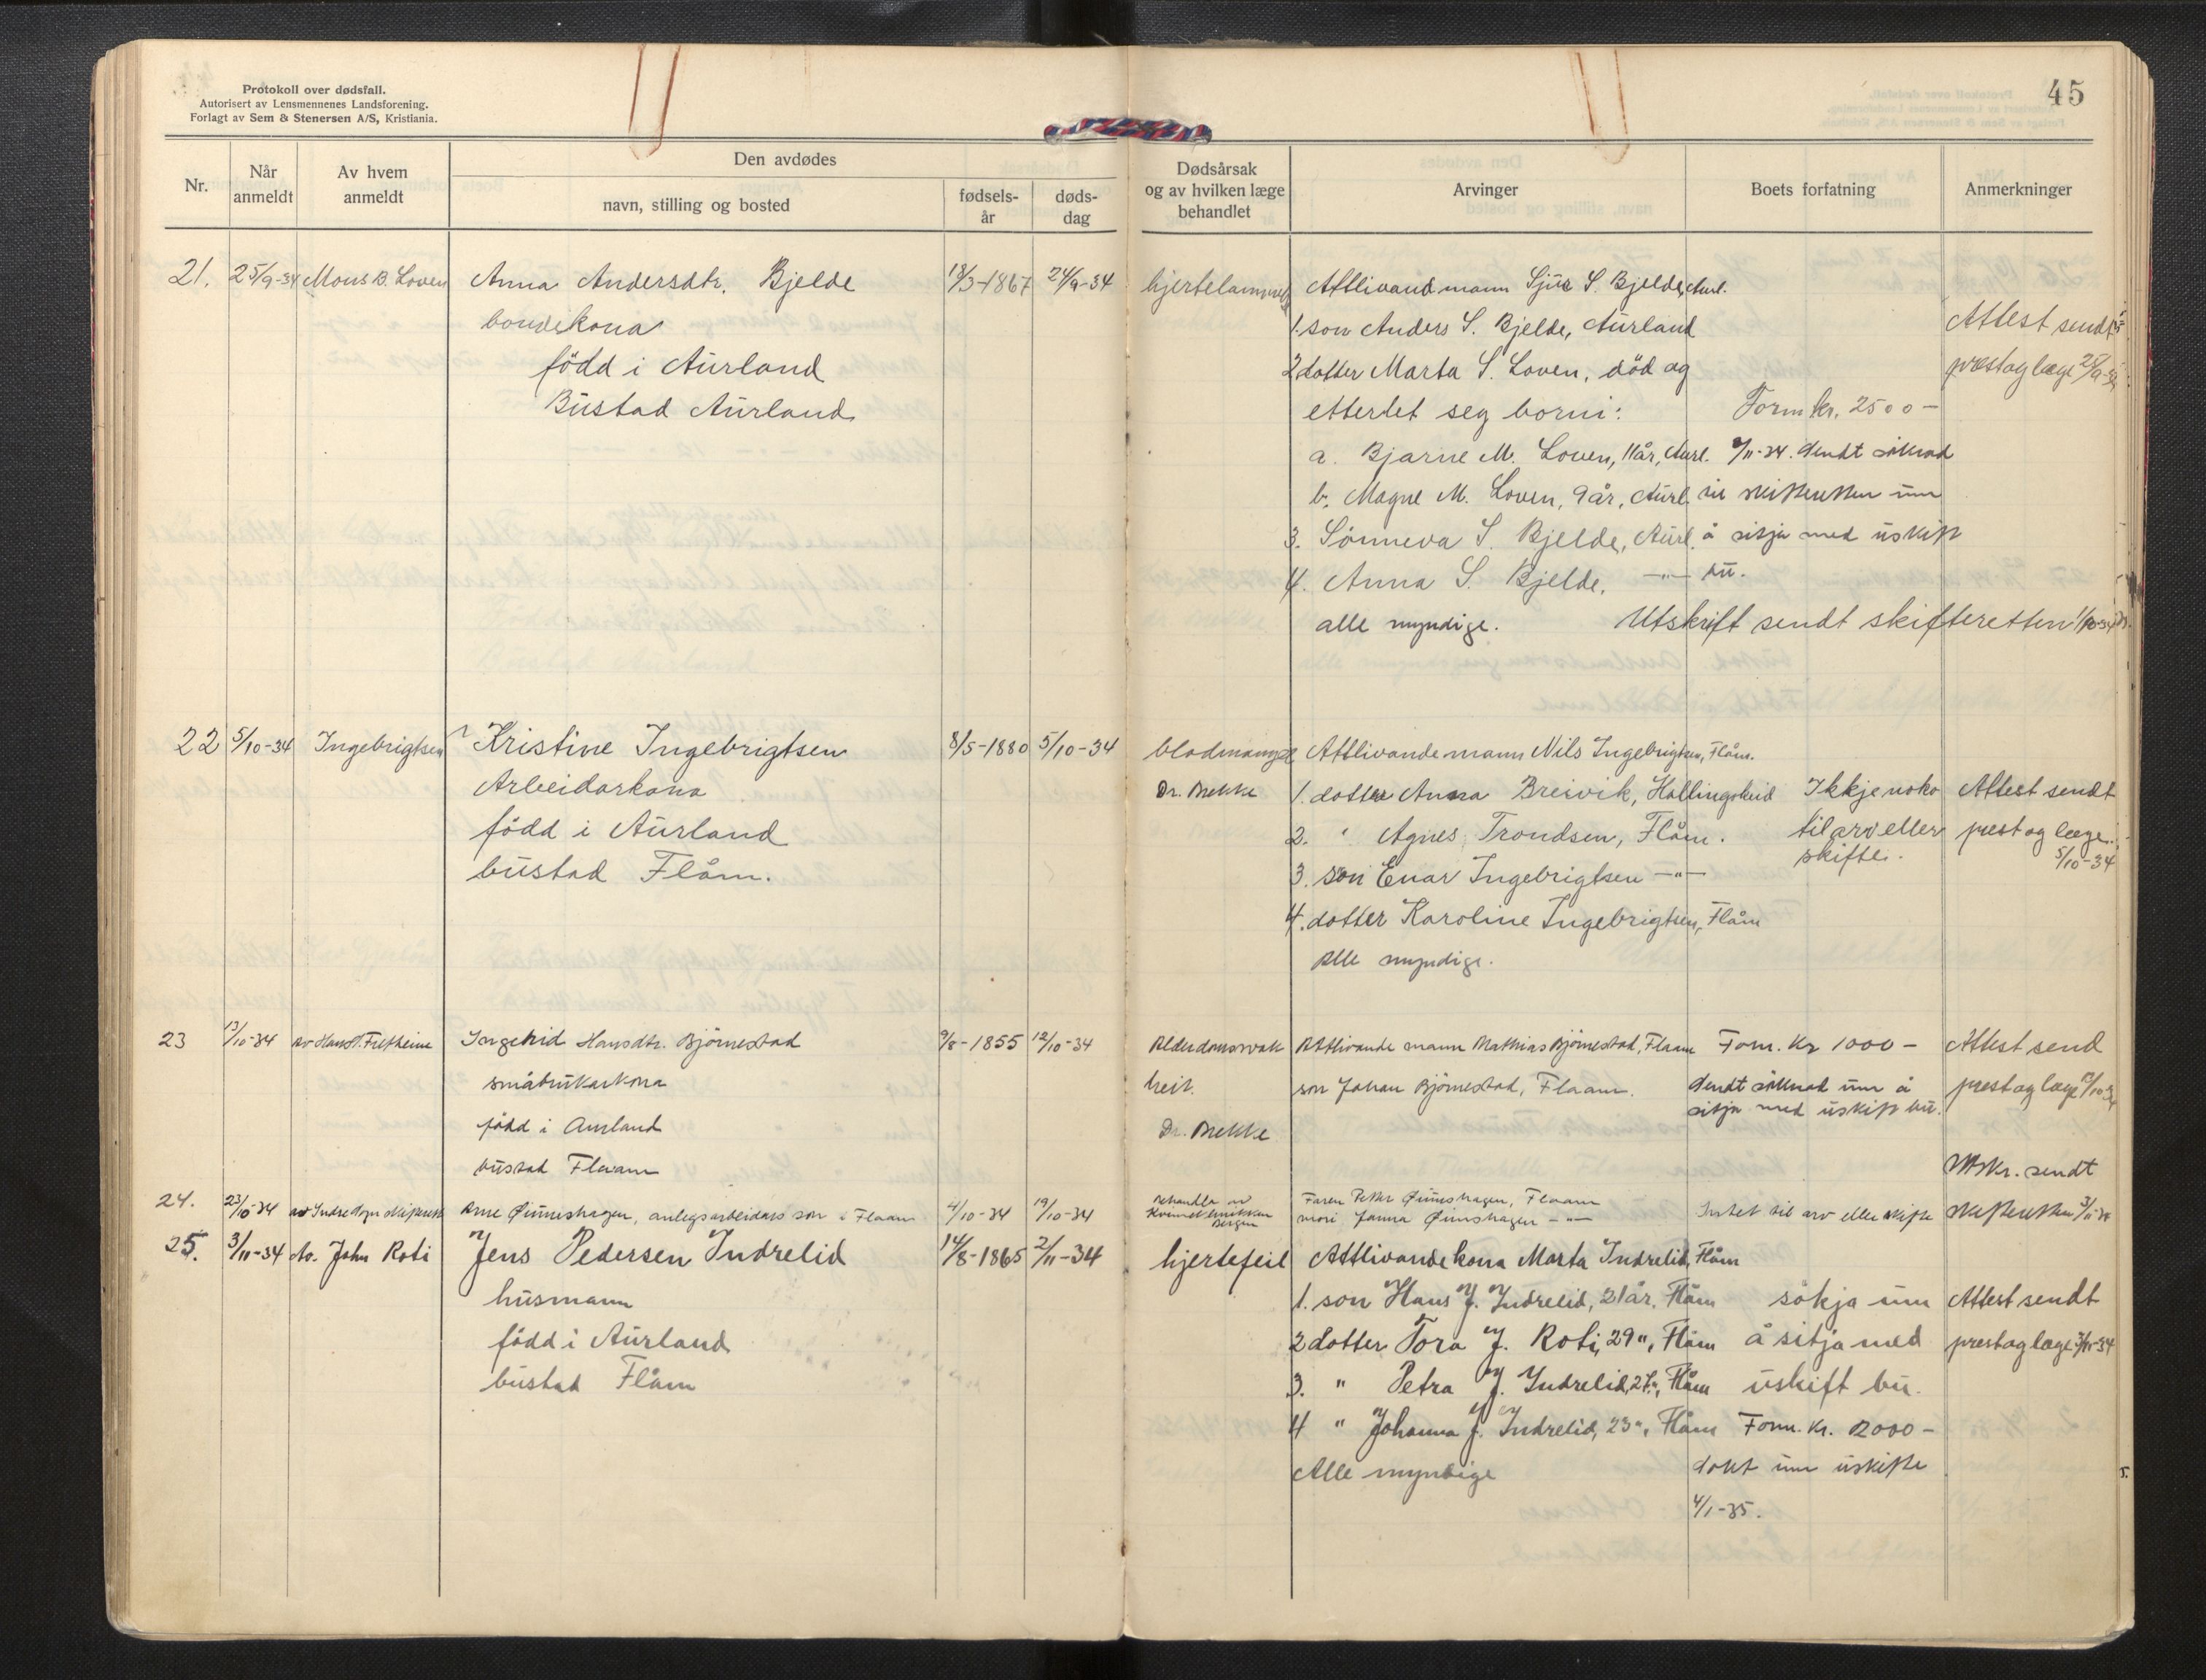 Protokoll over dødsfall.
Autorisert av Lensmennenes Landsforening.
Forlagt av Sem & Stenersen A/S, Kristiania.
45
Nr.
Når anmeldt
Av hvem anmeldt
Den avdødes
navn, stilling og bosted
fødsels-år
døds-dag
Dødsårsak og av hvilken læge behandlet
Arvinger
Boets forfatning
Anmerkninger
21. 25/9-34 Mons B. Loven Anna Andersdtr. Bjelde 18/3-1867 24/9-34
bondekona
född i Aurland
Bustad Aurland
Attlivand mann Sjur S. Bjelde, Aurl.
1. son Anders S. Bjelde, Aurland
2 dotter Marta S. Loven, död og
etterlet seg borni:
a. Bjarne M. Loven, 11 år, Aurl.
b. Magne M. Loven, 9 år, Aurl.
3. Sönneva S. Bjelde, Aurl.
4. Anna S. Bjelde, -"-
alle myndige.
Form kr. 2500-
Sendt söknad
til skifteretten um
å sitja med uskift
bu.
Utskrift sendt skifteretten
Attest sendt
prest og læge 25/9-34
22 5/10-34 Ingebrigtsen Kristine Ingebrigtsen 8/5-1880 5/10-34
Arbeidarkona
född i Aurland
bustad Flåm.
blodmangel
Dr. Brekke
Attlivande mann Nils Ingebrigtsen, Flåm.
1. dotter Anna Breivik, Hallingskeid
2. " Agnes Trondsen, Flåm.
3. son Einar Ingebrigtsen -"-
4. dotter Karoline Ingebrigtsen, Flåm
alle myndige.
Ikkje noko
til arv eller
skifte.
Attest sendt
prest og læge.
5/10-34
23 13/10-34 av Hans Fretheim Ingebrid Hansdtr. Björnestad 9/8-1855 12/10-34
småbrukarkona
född i Aurland
bustad Flaam
Alderdomsvak
heit.
Dr. Brekke
Attlivande mann Mathias Björnestad, Flaam
son Johan Björnestad, Flaam.
Form. Kr 1000-
Sendt söknad um å
sitja med uskift bu.
Attest send
prest og læge 13/10-34
Utskr. sendt
skifteretten
24. 23/10-34 av Indre Sogn skifterett Arne Qumshagen, anlegsarbeidars son i Flaam 4/10-34 19/10-34
behandla av
Kvinneklinikken
Bergen
Faren Petter Qumshagen, Flaam
mori Janna Qumshagen -"-
Intet til arv eller skifte
25. 3/11-34 Av. John Roti Jens Pedersen Indrelid 14/8-1865 2/11-34
husmann
född i Aurland
bustad Flåm
hjertefeil
Attlivande kona Marta Indrelid, Flåm
1. son Hans J. Indrelid, 21 år, Flåm
2 dotter Tora J. Roti, 29 ", Flåm
3. " Petra J. Indrelid, 27 ", Flåm
4 " Johanna J. Indrelid, 23 ", Flåm
Alle myndige
sökja um
å sitja med
uskift bu.
Form. kr. 2000-
sökt um uskifte
4/1-35.
Attest sendt
prest og læge 3/11-34